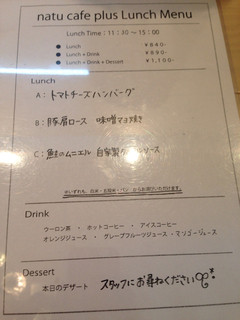 natu cafe plus Lunch Menu
Lunch Time : 11 : 30 ～ 15 : 00
● Lunch ￥840-
● Lunch + Drink ￥890-
● Lunch + Drink + Dessert ￥1,100-
Lunch
A : トマトチーズハンバーグ
B : 豚肩ロース 味噌マヨ焼き
C : 鮭のムニエル 自家製 ソース
Drink
ウーロン茶 ・ ホットコーヒー ・ アイスコーヒー
オレンジジュース ・ グレープフルーツジュース ・ マンゴージュース
Dessert
本日のデザート スタッフにお尋ねください